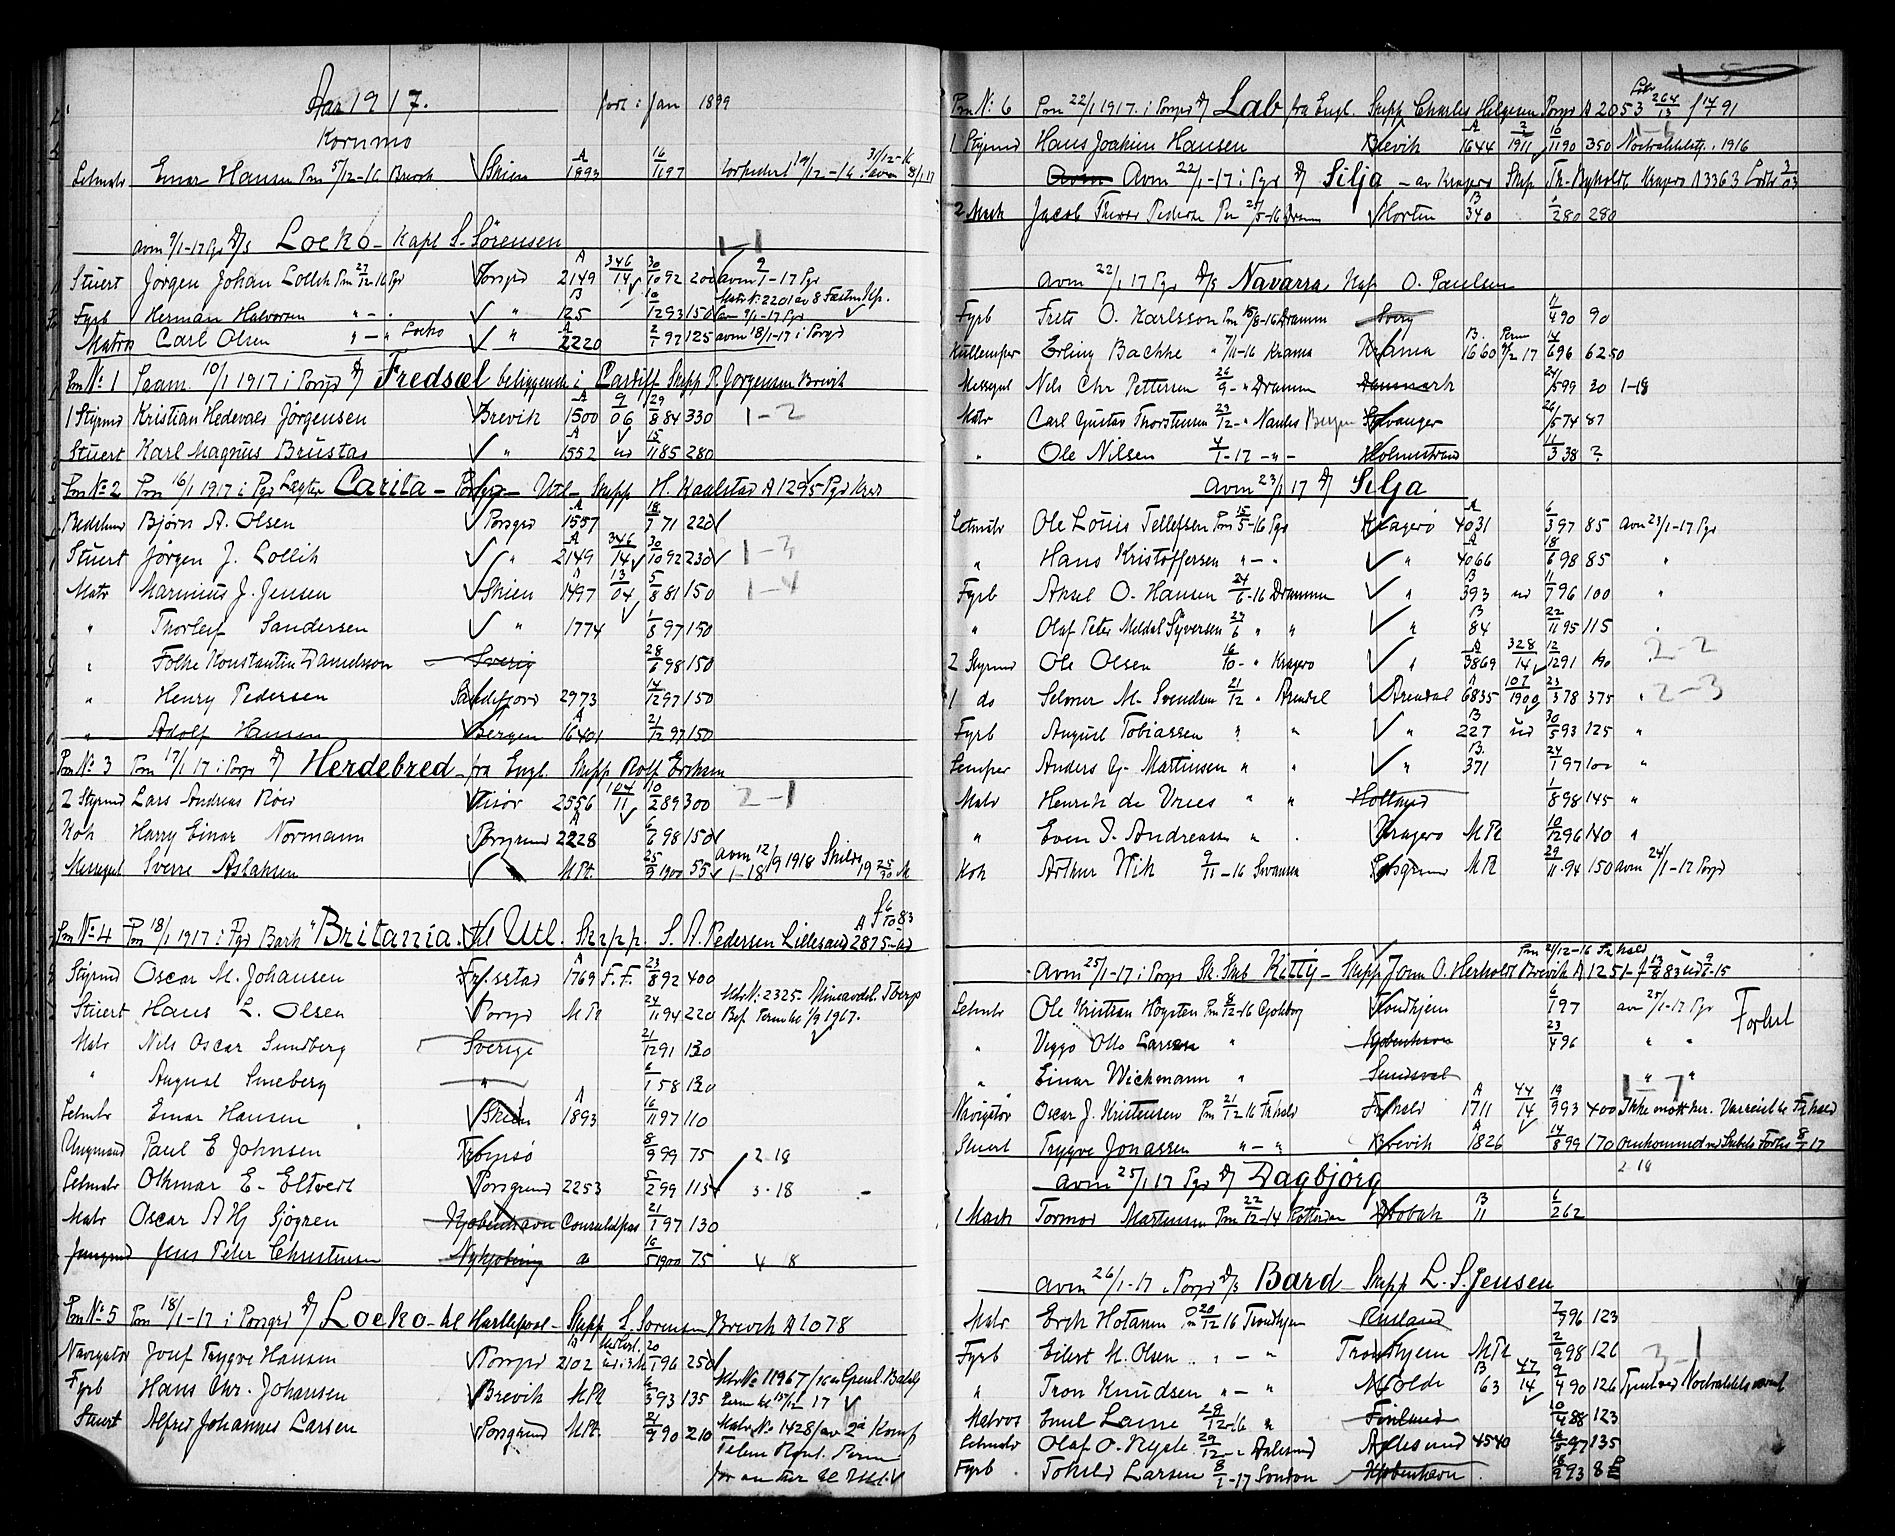 Aar 1917. født: Jan 1899
Kornmo
Letmatr Einar Hansen Pm 5/12-16 Brevik Skien A 1893 16/11 97 torpedert 19/12-16 31/12-16 8/1 17
avm 9/1-17 Pgr D/S Locko - Kapt S. Sörensen 1-1
Stuert Jørgen Johan Lollik Pm 27/12-16 Pgr Porsgrd A 2149 346/14 30/10 92 200 avm 9/1-17 Pgr
Fyrb Herman Halvorsen " - " " B 125 10/12 93 150 av 9/1-17 Pgr
Matros Carl Olsen " - " Locko " A 2220 2/1 97 125 avm 18/1-17 i Porsgrd
Pm No 1 10/1 1917 i Porsgrd D/S Fredsæl beliggende i Cardiff Skipp P. Jørgensen Brevik
1 Styrmd Kristian Hedevaes Jørgensen Brevik A 1500 9/06 29/8 84 330 1-2
Stuert Karl Magnus Brustad " A 1552 ud 15/11 85 280
Pm No 2 Pm 16/1 1917 i Pgr Lægter Carita - Porsgr - Utl - Skipp H. Kaalstad A 1295 Pgr Kred
Bedstmd Bjørn A. Olsen Porsgrd A 1557 18/7 71 220
Stuert Jørgen J. Lollik " A 2149 346/14 30/10 92 230 1-3
Matr Marinius J. Jensen Skien A 1497 13/04 5/8 81 150 1-4
" Thorleif Sandersen " 1774 1/8 97 150
" Folke Konstantin Danielsson Sverig 28/6 98 150
" Henry Pedersen Sandefjord 2973 14/12 97 150
" Adolf Hansen Bergen A 16401 21/12 97 150
Pm No 3 Pm 17/1 17 i Porsgr D/S Herdebred - fra Engl. Skipp Rolf
2 Styrmd Lars Andreas Röed Risör 2556 104/11 10/2 89 300 2-1
Kok Harry Einar Normann Porsgrund A 2228 6/6 98 150
Messegut Sverre Aslaksen " M Rt. 25/9 1900 55 avm 12/9 1918 1-18
Pm No 4 Pm 18/1 1917 i Pgr Bark "Britania. til Utl. Skipp. S. A. Pedersen Lillesand A 2875 - ud f 6/10 83
Styrmd Oscar M. Johansen Fr.stad A 1769 F.F. 23/8 92 400
Stuert Hans L. Olsen Porsgr M Rt 24/11 94 220 Mtr No 2325. Minearbdl. Tbergs Bef. Perm til 1/9 1967.
Matr Nils Oscar Sundberg Sverige 21/12 91 130
" August Smeberg " 6/1 58 130
Letmatr Einar Hansen Skien A 1893 16/11 97 110
Ungmand Paul E Johnsen Tromsö 8/9 99 75 2 18
Letmatr Othmar E. Eltvedt Porsgrund 2253 5/2 99 115 3-18
Matr Oscar A Hj Sjögren Kjøbenhavn Consulatpas 21/1 97 130
Jungmd Jens Peter Christensen Nykjøbing do 16/5 1900 75 4 18
Pm No 5 Pm 18/1-17 i Porsgrd D/S Locko - til Hartlepool - Skipp S. Sörensen Brevik A 2078
Navigatør Josef Trygve Hansen Porsgrd B 2102 20/1 96 250
Fyrb Hans Chr. Johansen Brevik M Rt 6/3 93 135 Mtr No 11967/16 Perm til 15/12 17
Stuert Alfred Johannes Larsen Porsgrund M Rt. 21/9 90 210 Matr No 1428/av 2a Komp Telem Regnt. Perm for an tur til Utl.
Pm No 6 Pm 22/1 1917. i Porsgr D/S Lab fra Engl. Skipp Charles Helgesen Porsgr A 2053 264/13 f 14/7 91
1 Styrmd Hans Joakim Hansen Brevik A 1644 2/1911 16/11 90 350 1916
Avm 22/1-17 i Pgr D/S Silja - av Kragerø Skip Th. Kragerø A 3363 3/03
2 Mask Jacob Thevor Pederse Pm 25/5-16 Dramm Horten B 340 1/2 80 280
avm 22/1 17 Pgr D/S Navarra Kap O. Paulsen
Fyrb Frits O. Karlsson Pm 15/8-16 Dramm Sverig 11/4 90 90
Kullemper Erling Bachke " 7/11-16 Krania Krania B. 1660 Perm 9/2 17 14/6 96 62 50
Messegut Nils Chr Pettersen 26/9 - " Dramm Danmark 24/5 99 20 1-18
Matr Carl Gustav Thorstensen 23/12 - " Nantes Bergen Stavanger 26/5 74 87
" Ole Nilsen 4/1-17 - " - Holmestrand 11/3 38 ?
Avm 23/1 17 D/S Silja
Letmatr Ole Louis Tellefsen Pm 15/5-16 Pgr Kragerø A 4031 6/3 97 85 avm 23/1-17 Pgr
" Hans Kristoffersen " - " " A 4066 18/6 98 85 "
Fyrb Aksel O. Hansen 24/6-16 Drammen " B 393 ud 11/7 96 100 "
" Olaf Peter Meldal Syversen 27/6 " " " B 84 22/11 95 115 "
2 Styrmd Ole Olsen 16/10 - " Kragerø " A 3869 328/14 12/12 91 190 2-2
1 do Selmer M. Svendsen 21/12 " Arendal Arendal A 6835 107/1900 23/3 78 375 " 2-3
Fyrb August Tobiassen " " " B 227 ud 30/5 93 125 "
Lemper Anders G. Mathiesen " " " B. 371 24/1 97 100 "
Matr Henrik de Vries " " Holland 1/8 98 145 "
" Even I. Andreassn " " Kragerø M Rt 10/12 96 140 "
Kok Arthur Wik 9/11-16 Swansea Porsgrund M Rt 29/11 94 150 avm 24/1-17 Porsgr
Avm 25/1-17 i Porsgr Sk. Skib Kitty - Skipp Jonn O. Herholdt Brevik A 1251 - f 13/8 83 ud 9/6-15 Pm 21/12-16 Frhald
Letmatr Ole Kristian Høgsten Pm 8/12-16 Gøteborg Trondhjem 6/1 97 avm 25/1-17 Pgr Forlist
" Viggo Otto Larsen " Kjøbenhavn 23/4 96 " "
" Einar Wickmann " Sundsval " "
Navigatør Oscar J. Kristensen Pm 21/12-16 Frhald Frhald A 1711 44/14 19/9 93 400 1-7 Ikke mønstret. Frhald
Stuert Trygve Jonassen " - " Brevik A 1826 14/8 99 170 omkommet ved Skibets Forlis 8/2 17
2 18
avm 25/1 17 Pgr D/S Dagbjörg
1 Mask Tormod Martinsen Pm 22/12-14 Rotterdam Drøbak B 11 6/2 62
avm 26/1-17 i Porsgr D/S Bard - Skipp L. S. Jensen
Matr Erik Hotanen Pm 20/12 16 Trondhjem Rusland 7/5 96 123
Fyrb Eilert M. Olsen " - " Trondhjem M Rt 2/9 98 126 3-1
" Tron Knudsen " - " Molde B 63 47/14 9/4 90 126
Matros Emil Laine 29/12-16 " Finland 10/4 88 123
Letmatr Olaf O. Rysta 29/12 - " Aalesund Aalesund 4540 16/5 97 135
Fyrb Tokild Larsen 8/1-17 London Kjøbenhavn 18/9 93 8